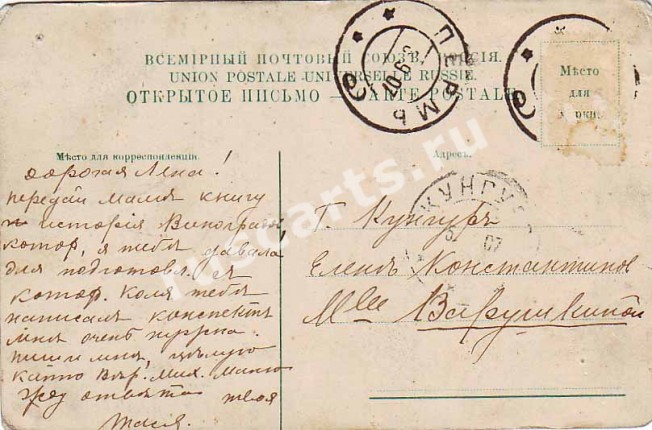 ВСЕМІРНЫЙ ПОЧТОВЫЙ СОЮЗЪ. РОССІЯ.
UNION POSTALE UNIVERSELLE RUSSIE.
ОТКРЫТОЕ ПИСЬМО — CARTE POSTALE
ПЕРМЬ
Мѣсто
для
марки.
Мѣсто для корреспонденціи.
Дорогая Лена!
передай Мамѣ книгу
исторія Виноград,
котор. я тебѣ давала
для подготовл.
котор. Коля тебѣ
написалъ конспектъ
мнѣ очень нужна.
пиши мнѣ, цѣлую
Вар. Мих.
жду отвѣта твоя
Тася.
Адресъ.
КУНГУ
07
Г. Кунгуръ
Еленѣ Константиновнѣ
Mlle Варушкиной
ruscarts.ru